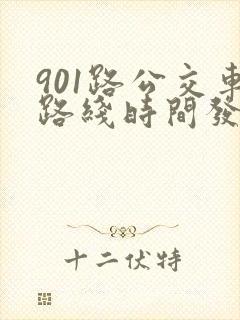 901路公交車
路綫時間發
十二伏特